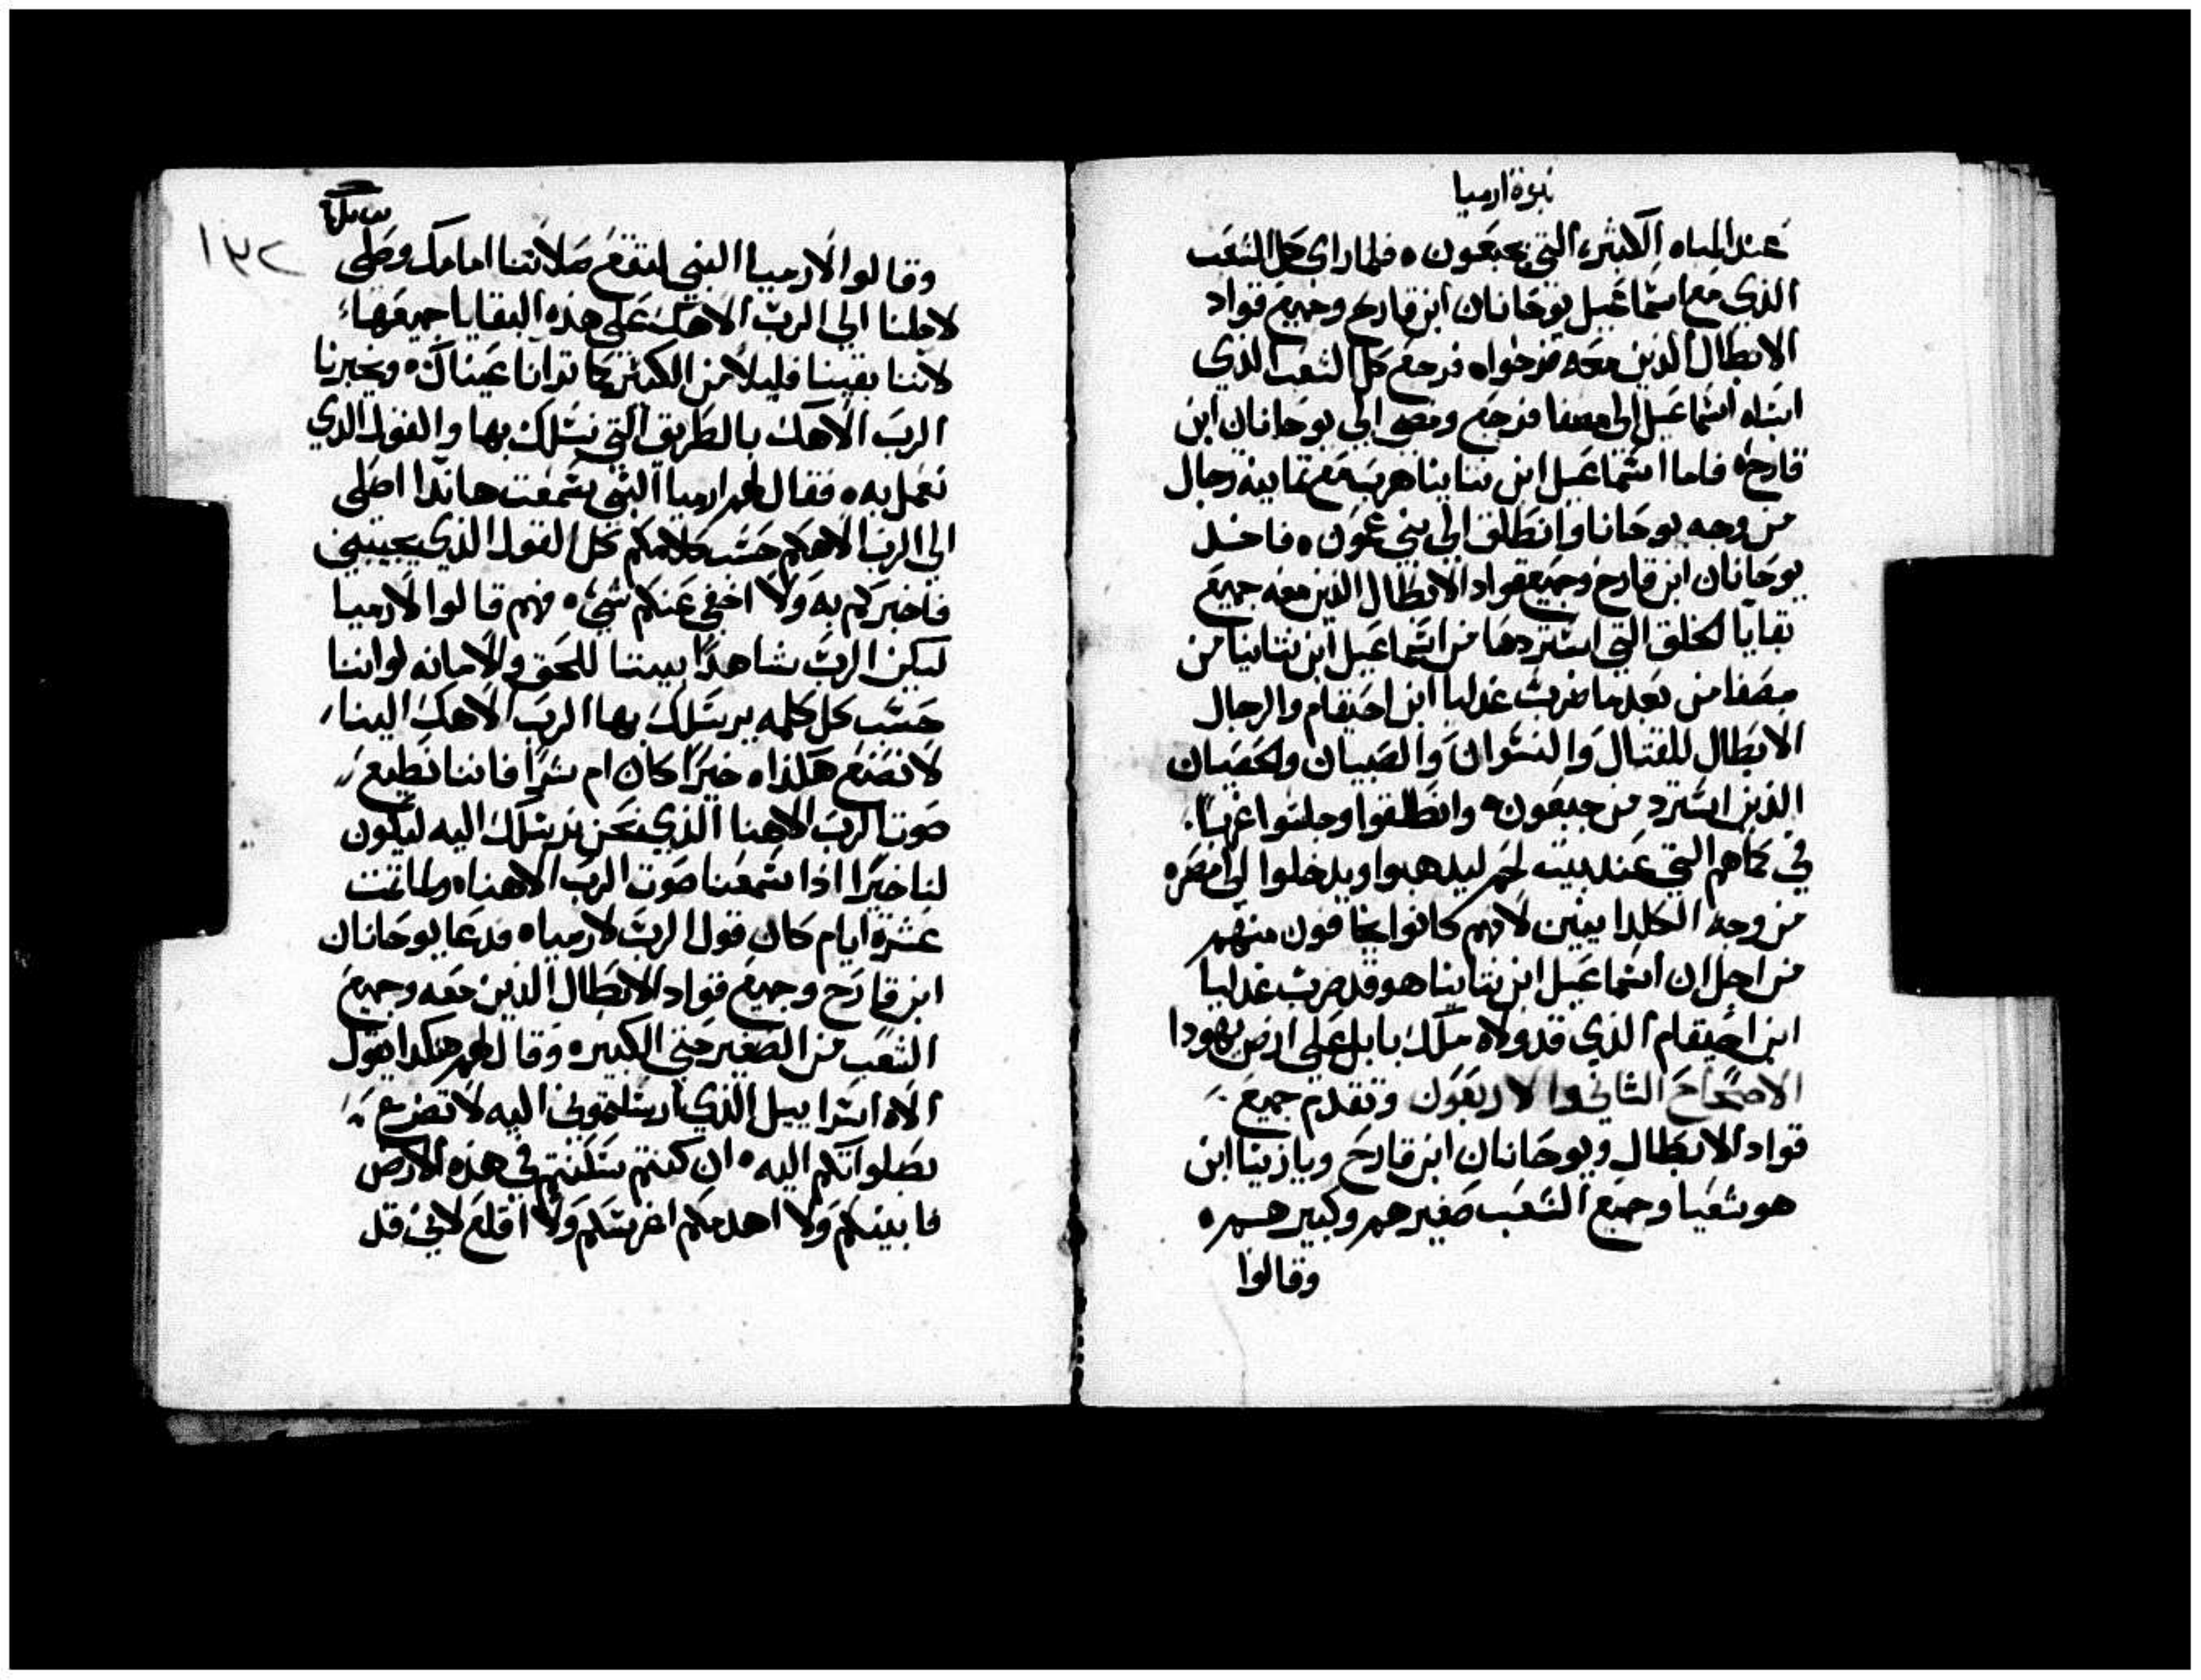 نبوة ارميا
عند المياه الكثيره التي بجبعون ه فلما راى كل الشعب
الذي مع اسماعيل يوحانان ابن قارح وجميع قواد
الابطال الذين معه فرحواه فرجع كل الشعب الذي
اسماعيل الى مصفا فرجع ومضى الى يوحانان ابن
قارح ه فاما اسماعيل ابن نتاينا هرب مع ثمانية رجال
من وجه يوحانا وانطلق الى بني عمون ه فاخد
يوحانان ابن قارح وجميع قواد الابطال الذين معه جميع
بقايا الخلق التي استردها من اسماعيل ابن نتانيا من
مصفا من بعد ما ضرب غدليا ابن احيقام والرجال
الابطال للقتال والنسوان والصبيان والخصيان
الذين استرد من جبعون ه وانطلقوا وجلسوا
في التي عند بيت لحم ليدهبوا ويدخلوا الى مصره
من وجه الكلدانيين لانهم كانوا يخافون منهم
من اجل ان اسماعيل ابن نتاينا هو قد ضرب غدليا
ابن احيقام الذي قد ولاه ملك بابل على ارض يهودا
الاصحاح الثاني والاربعون وتقدم جميع
قواد الابطال ويوحانان ابن قارح ويازنيا ابن
هوشعيا وجميع الشعب صغيرهم وكبيرهم ه
وقالوا
١٣٢
وقالوا لارميا النبي لتقع صلاتنا امامك وصلي
لاجلنا الى الرب الاهك على هذه البقايا جميعها
لاننا بقينا قليلا من الكثير كما ترانا عيناك ه ويخبرنا
الرب الاهك بالطريق التي نسلك بها والقول الذي
نعمل به ه فقال لهم ارميا النبي سمعت هانذا اصلي
الى الرب الاهكم حسب كلامكم كل القول الذي يجيبني
فاخبركم به ولا اخفي عنكم شي ه فهم قالوا لارميا
ليكن الرب شاهدا بيننا للحق والامانه لو اننا
حسب كل كلمه يرسلك بها الرب الاهك الينا
لا نصنع هكذا ه خيرا كان ام شرا فاننا نطيع
صوت الرب الاهنا الذي نحن نرسلك اليه ليكون
لنا خيرا اذا سمعنا صوت الرب الاهنا ه ولما تمت
عشرة ايام كان قول الرب لارميا ه فدعا يوحانان
ابن قارح وجميع قواد الابطال الذين معه وجميع
الشعب من الصغير حتى الكبير ه وقال لهم هكدا يقول
الاه اسراييل الذي ارسلتموني اليه لاتضرع
بصلواتكم اليه ه ان كنتم سكنتم في هذه الارض
فابنيكم ولا اهدمكم اغرسكم ولا اقلع لاني قد